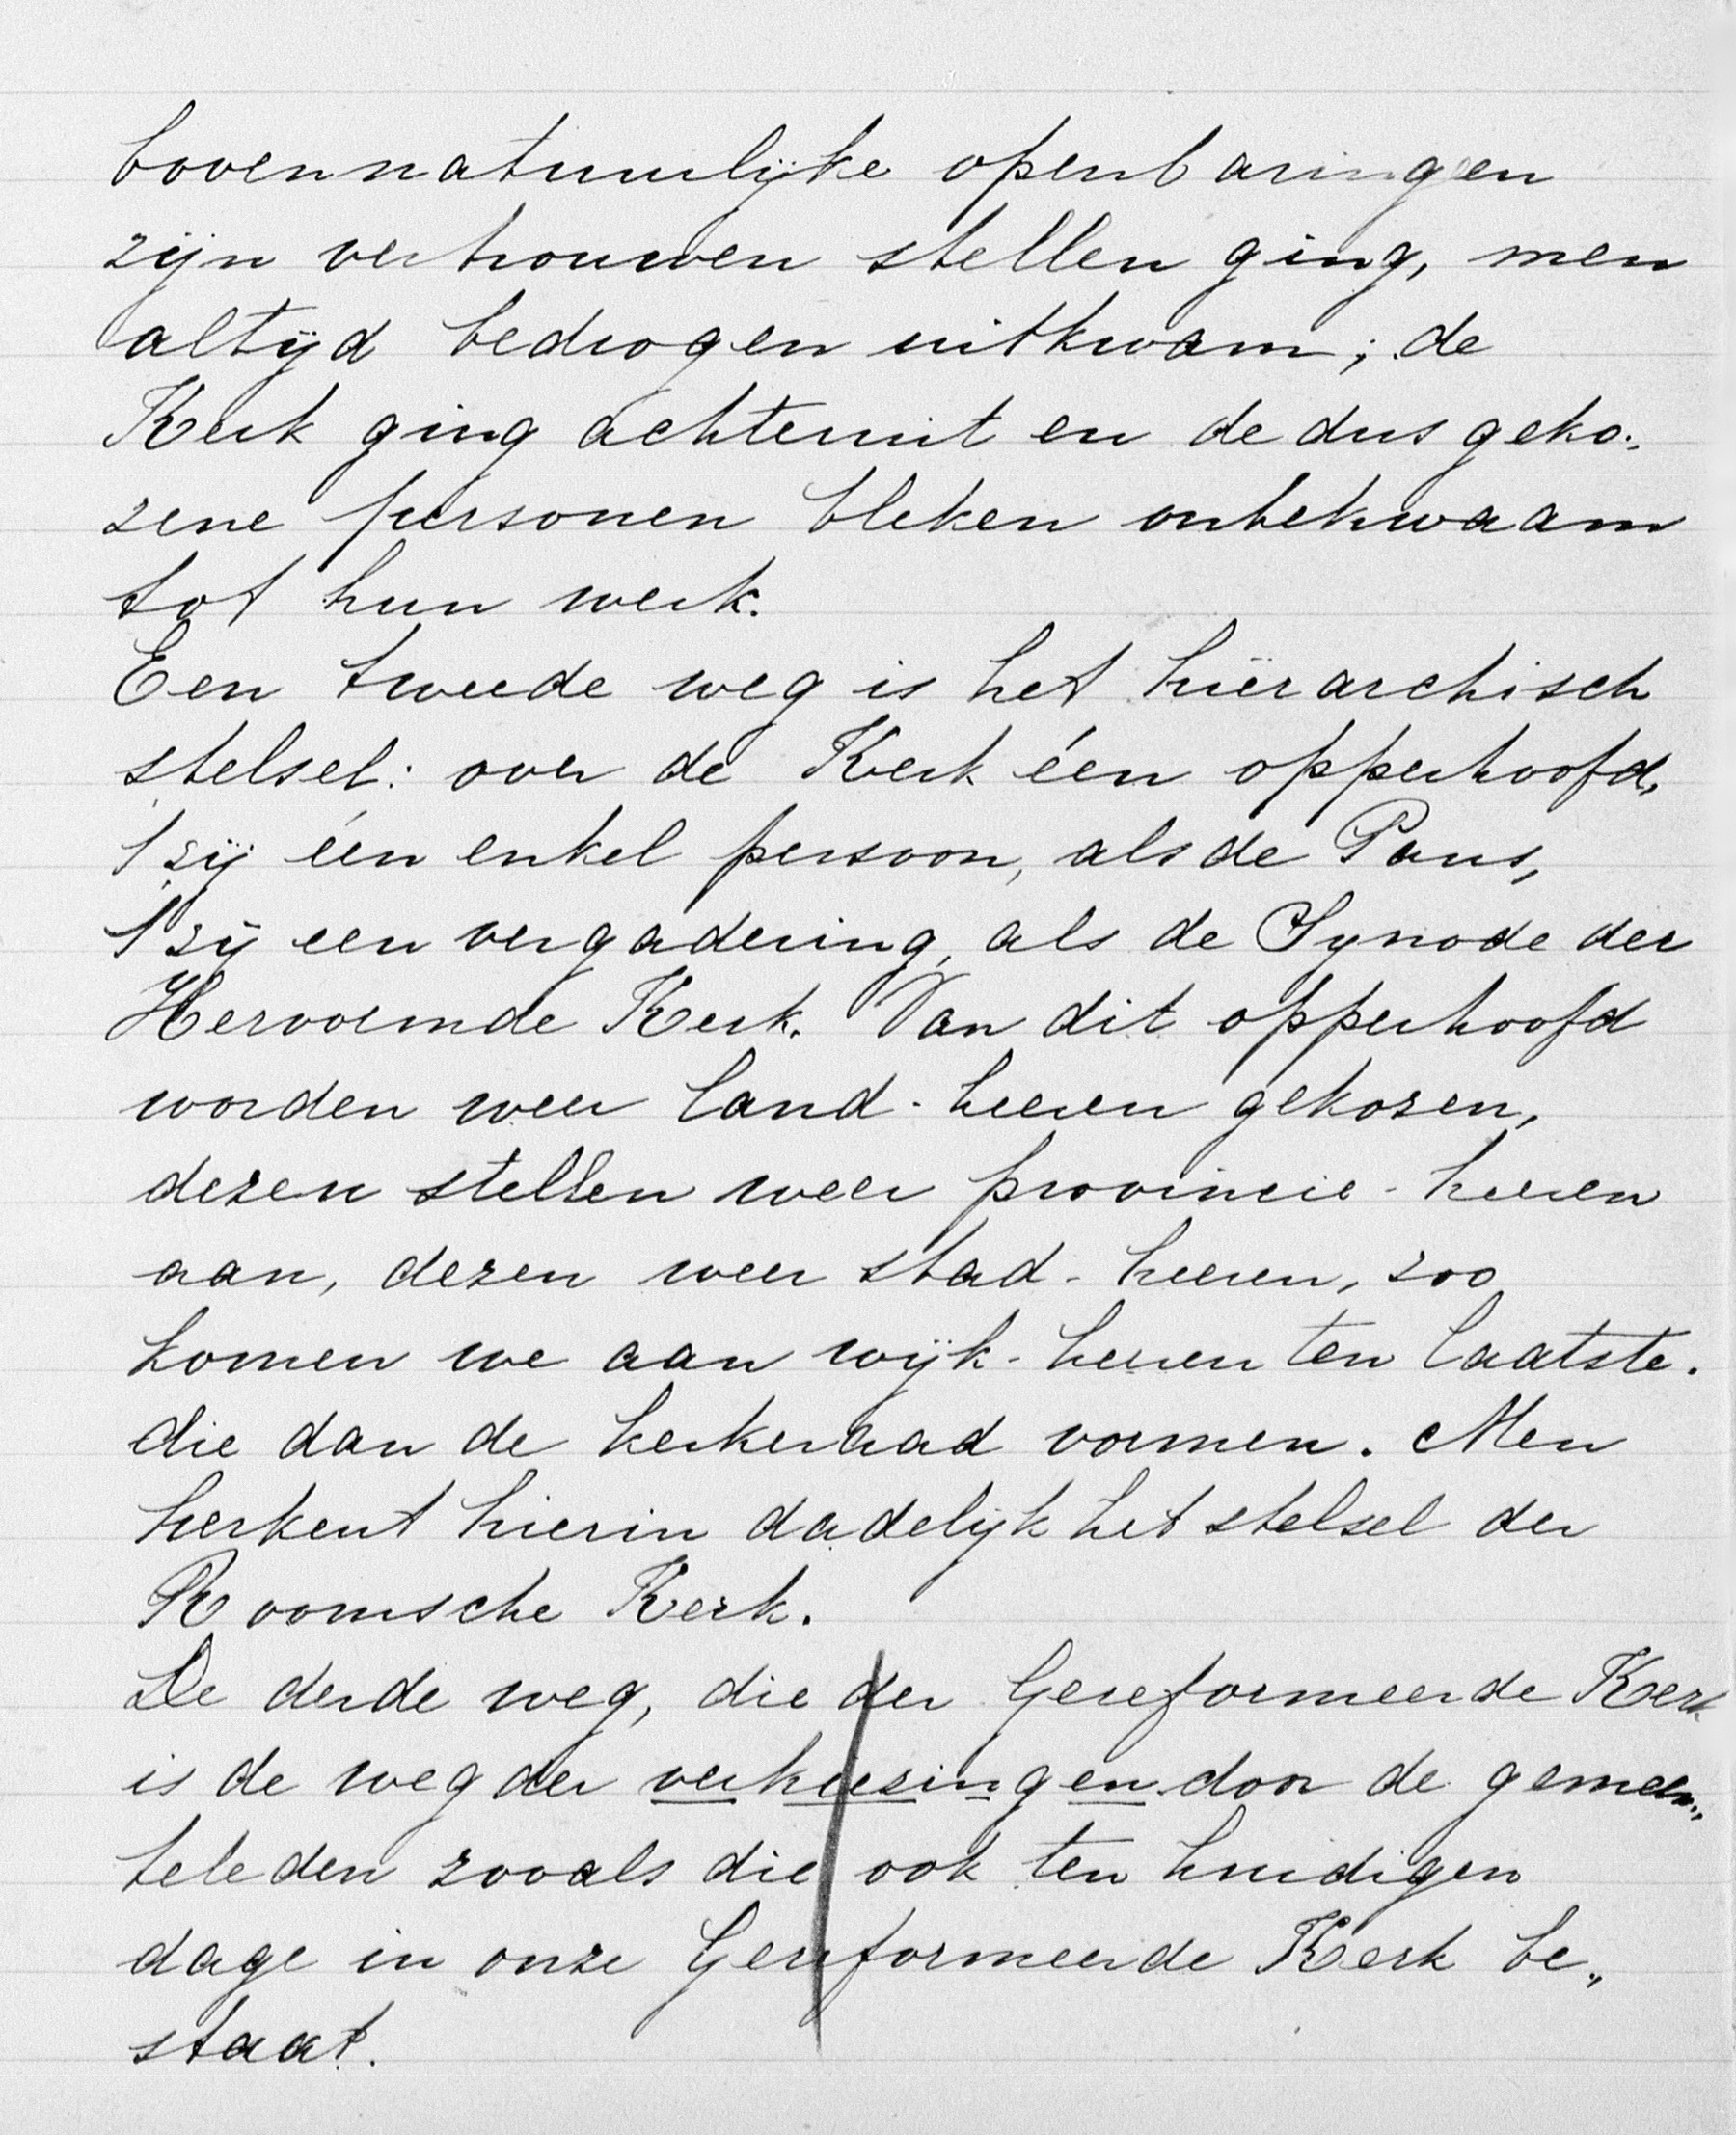 bovennatuurlijke openbaringen
zijn vertrouwen stellen ging, men
altijd bedrogen uitkwam; de
Kerk ging achteruit en de dus geko„
zene personen bleken onbekwaam
tot hun werk.
Een tweede weg is het hiërarchisch
stelsel: over de Kerk één opperhoofd,
'tzij één enkel persoon, als de Paus,
'tzij een vergadering, als de Synode der
Hervormde Kerk. Van dit opperhoofd
worden weer land-heeren gekozen,
dezen stellen weer provincie-heeren
aan, dezen weer stad-heeren, zoo
komen we aan wijk-heeren ten laatste.
die dan de kerkeraad vormen. Men
herkent hierin dadelijk het stelsel der
Roomsche Kerk.
De derde weg, die der Gereformeerde Kerk
is de weg der verkiezingen door de gemeen„
teleden zooals die ook ten huidigen
dage in onze Gereformeerde Kerk be„
staat.